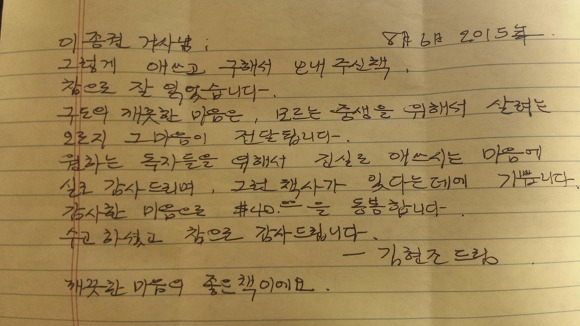 이 종권 거사님; 8月 6日 2015年.
그렇게 애쓰고 구해서 보내 주신책,
참으로 잘 읽었습니다.
구도의 깨끗한 마음은, 모르는 중생을 위해서 살려는
오르지 그 마음이 전달됩니다.
원하는 독자들을 위해서 진실로 애쓰시는 마음에
실로 감사드리며, 그런 책사가 있다는데에 기쁩니다.
감사한 마음으로 $40.00 을 동봉합니다.
수고 하셨고 참으로 감사드립니다.
— 김현조 드림
깨끗한 마음의 좋은책이에요.